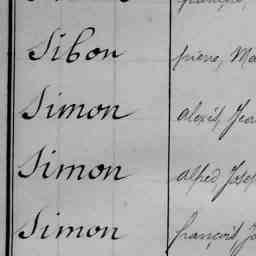 Sibon pierre, Ma
Simon alexis, Jea
Simon alfred, Josep
Simon françois, Jo